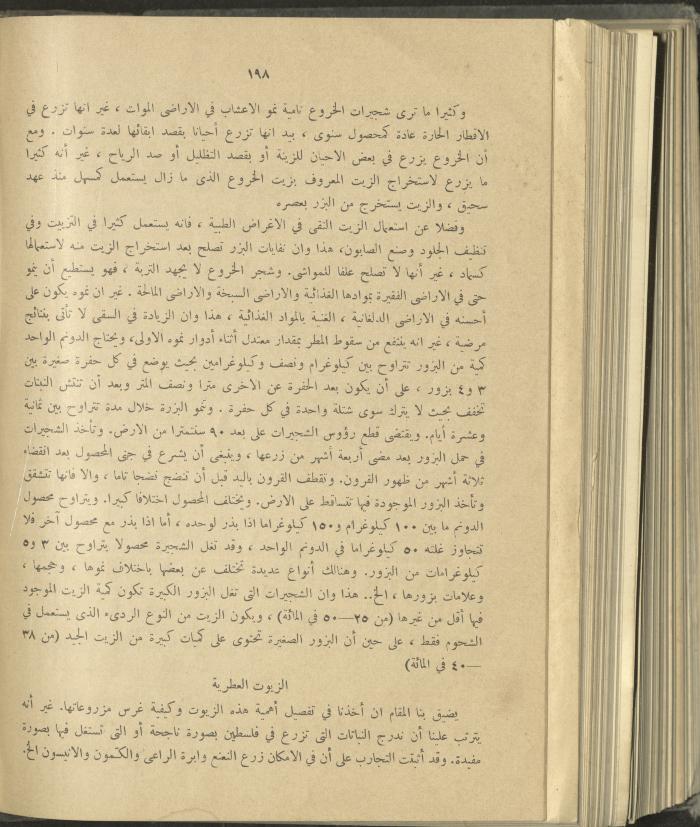 ١٩٨
وكثيرا ما ترى شجيرات الخروع نامية نمو الاعشاب في الاراضى الموات ، غير انها تزرع في
الاقطار الحارة عادة كمحصول سنوى ، بيد انها تزرع أحيانا بقصد ابقائها لعدة سنوات . ومع
أن الخروع يزرع في بعض الاحيان للزينة أو بقصد التظليل أو صد الرياح ، غير أنه كثيرا
ما يزرع لاستخراج الزيت المعروف بزيت الخروع الذى ما زال يستعمل كمسهل منذ عهد
سحيق ، والزيت يستخرج من البزر بعصره
وفضلا عن استعمال الزيت النقى في الاغراض الطبية ، فانه يستعمل كثيرا في التزييت وفي
تنظيف الجلود وصنع الصابون، هذا وان نفايات البزر تصلح بعد استخراج الزيت منه لاستعمالها
كسماد ، غير أنها لا تصلح علفا للمواشى. وشجر الخروع لا يجهد التربة ، فهو يستطيع أن ينمو
حتى في الاراضى الفقيرة بموادها الغذائية والاراضى السبخة والاراضى المالحة . غير ان نموه يكون على
أحسنه في الاراضى الدلغانية ، الغنية بالمواد الغذائية ، هذا وان الزيادة في السقى لا تأتى بنتائج
مرضية ، غير انه ينتفع من سقوط المطر بمقدار معتدل أثناء أدوار نموه الاولى، ويحتاج الدونم الواحد
كمية من البزور تتراوح بين كيلوغرام ونصف وكيلوغرامين بحيث يوضع في كل حفرة صغيرة بين
٣ و٤ بزور ، على أن يكون بعد الحفرة عن الاخرى مترا ونصف المتر وبعد أن تنتش النبتات
تخفف بحيث لا يترك سوى شتلة واحدة في كل حفرة . وتنمو البزرة خلال مدة تتراوح بين ثمانية
وعشرة أيام. ويقتضى قطع رؤوس الشجيرات على بعد ٩٠ سنتمترا من الارض. وتأخذ الشجيرات
في حمل البزور بعد مضى أربعة أشهر من زرعها ، وينبغى أن يشرع في جنى المحصول بعد انقضاء
ثلاثة أشهر من ظهور القرون. وتقطف القرون باليد قبل أن تنضج نضجا تاما ، والا فانها تتشقق
وتأخذ البزور الموجودة فيها تتساقط على الارض. ويختلف المحصول اختلافا كبيرا. ويتراوح محصول
الدونم ما بين ١٠٠ كيلوغرام و١٥٠ كيلوغراما اذا بذر لوحده ، أما اذا بذر مع محصول آخر فلا
تتجاوز غلته ٥٠ كيلوغراما في الدونم الواحد ، وقد تغل الشجيرة محصولا يتراوح بين ٣ و٥
كيلوغرامات من البزور. وهنالك أنواع عديدة تختلف عن بعضها باختلاف نموها ، وحجمها ،
وعلامات بزورها ، الخ.. هذا وان الشجيرات التى تغل البزور الكبيرة تكون كمية الزيت الموجود
فيها أقل من غيرها (من ٢٥—٥٠ في المائة) ، ويكون الزيت من النوع الردىء الذى يستعمل في
الشحوم فقط ، على حين أن البزور الصغيرة تحتوى على كميات كبيرة من الزيت الجيد (من ٣٨
—٤٠ في المائة)
الزيوت العطرية
يضيق بنا المقام ان أخذنا في تفصيل أهمية هذه الزيوت وكيفية غرس مزروعاتها. غير أنه
يترتب علينا أن ندرج النباتات التى تزرع في فلسطين بصورة ناجحة أو التى تستغل فيها بصورة
مفيدة. وقد أثبتت التجارب على أن في الامكان زرع النعنع وابرة الراعى والكمون والانيسون الخ.